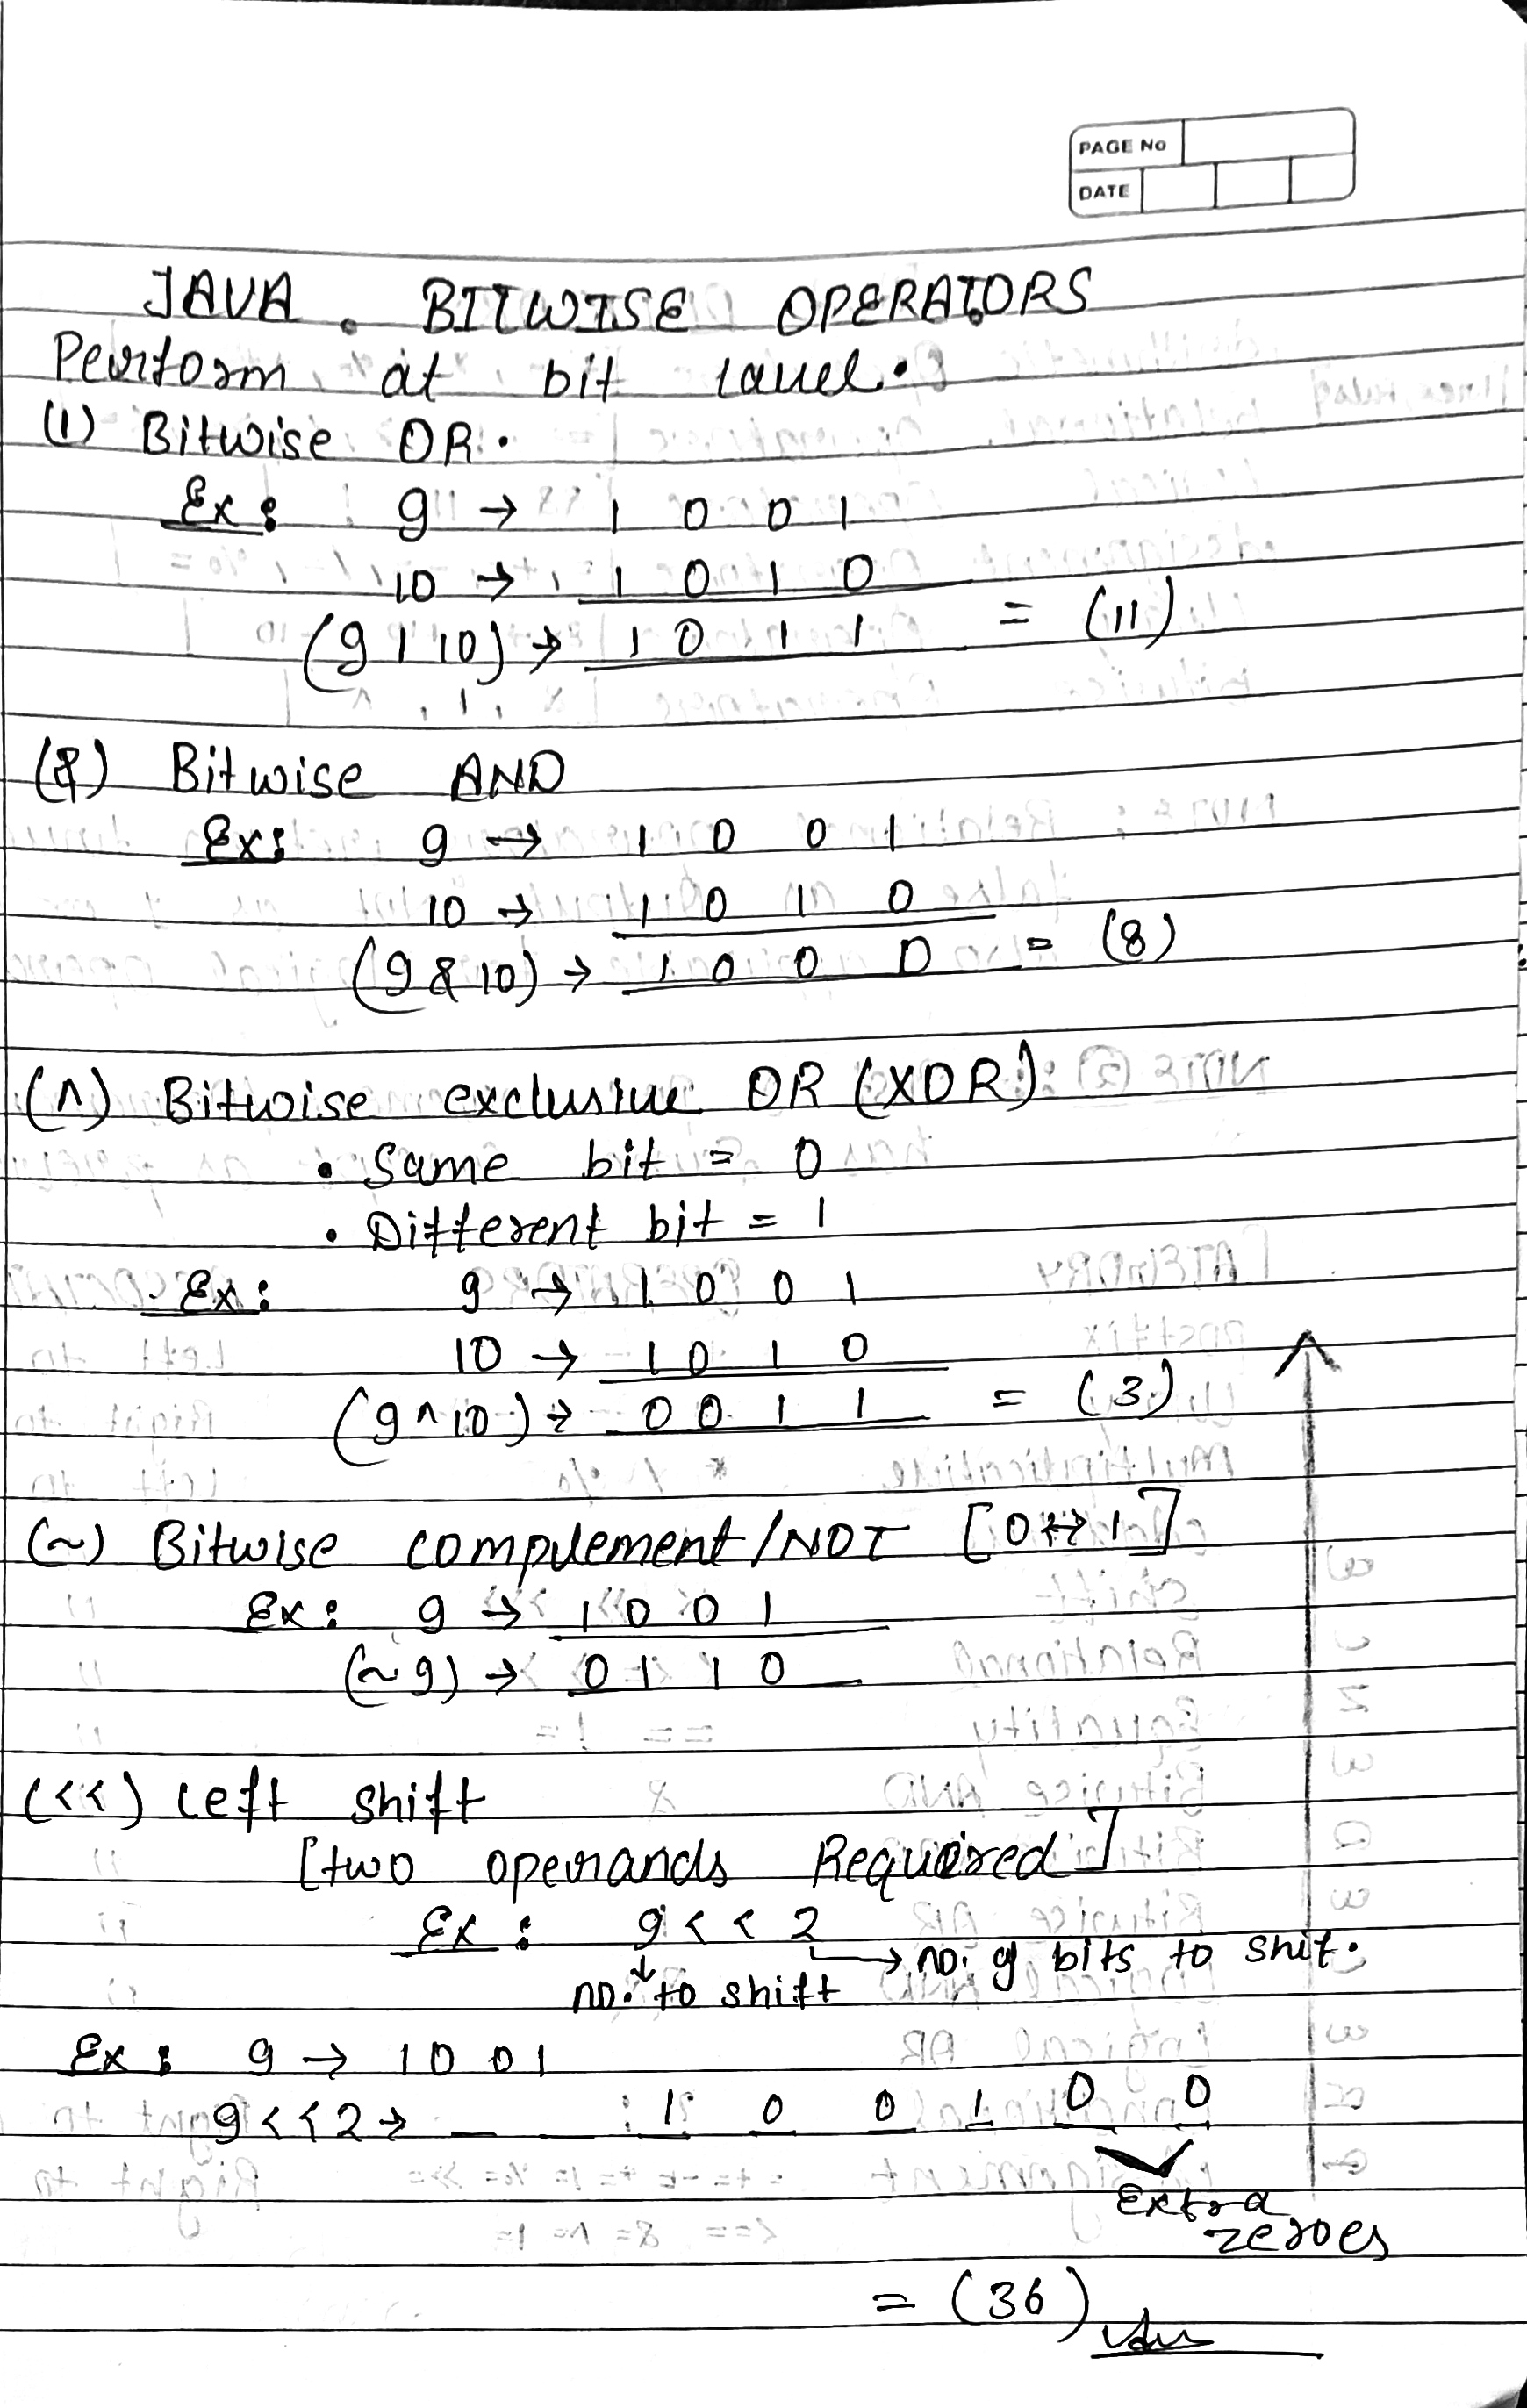 PAGE No
DATE
JAVA. BITWISE OPERATORS
Perform at bit level.
(|) Bitwise OR.
Ex: 9 → 1 0 0 1
10 → 1 0 1 0
(9 | 10) → 1 0 1 1 = (11)
(&) Bitwise AND
Ex: 9 → 1 0 0 1
10 → 1 0 1 0
(9 & 10) → 1 0 0 0 = (8)
(^) Bitwise exclusive OR (XOR)
• Same bit = 0
• Different bit = 1
Ex: 9 → 1 0 0 1
10 → 1 0 1 0
(9 ^ 10) → 0 0 1 1 = (3)
(~) Bitwise complement/NOT [0↔1]
Ex: 9 → 1 0 0 1
(~9) → 0 1 1 0
(<<) Left shift
[two operands Required]
Ex: 9 << 2
→ no. of bits to shit.
↓ no. to shift
Ex: 9 → 1 0 0 1
9 << 2 → _ _ 1 0 0 1 0 0
Extra
zeroes
= (36) Ans